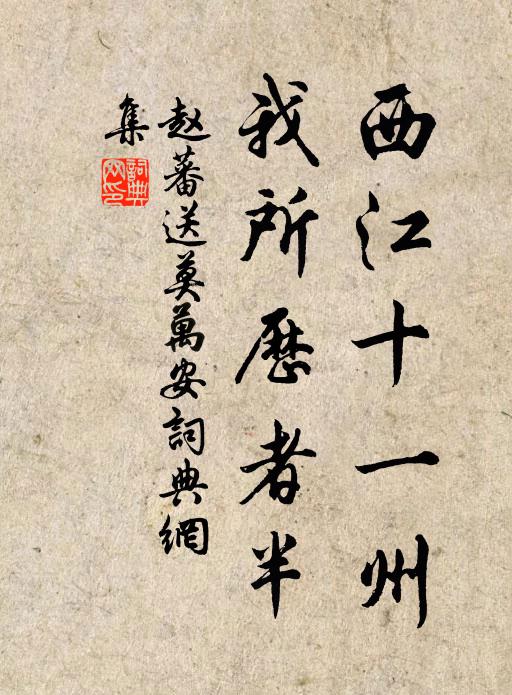 西江十一州
我所歷者半
赵蕃送莫萬安詞典網
集
詞典网印